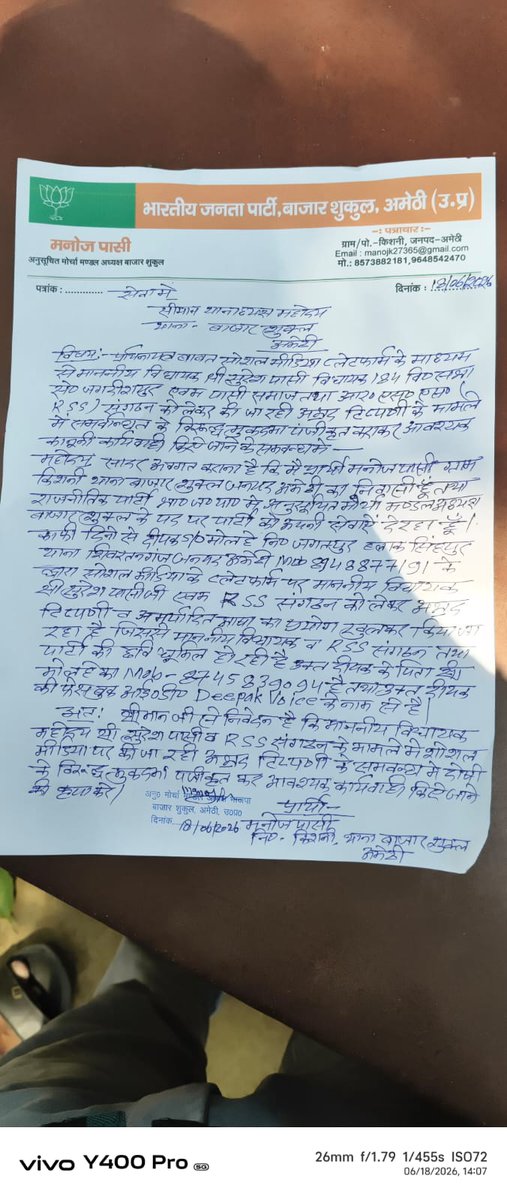 भारतीय जनता पार्टी, बाजार शुकुल, अमेठी (उ.प्र)
मनोज पासी
अनुसूचित मोर्चा मण्डल अध्यक्ष बाजार शुकुल
-: पत्राचार :-
ग्राम/पो.-किशनी, जनपद-अमेठी
Email : manojk27365@gmail.com
मो.: 8573882181,9648542470
पत्रांक : ............
दिनांक : 18/06/2026
सेवा में
श्रीमान थानाध्यक्ष महोदय
थाना- बाजार शुक्ल
अमेठी
विषय:- बावत सोशल मीडिया प्लेटफार्म के माध्यम
से माननीय विधायक श्री सुरेश पासी विधायक 184 वि०सभा
जगदीशपुर एवम पासी समाज तथा आर० एस० एस०
(RSS) संगठन को लेकर की जा रही अभद्र टिप्पणी के मामले
में के विरूद्ध मुकदमा पंजीकृत कराकर आवश्यक
कानूनी कार्यवाही किये जाने के सम्बन्ध में
महोदय, सादर अवगत कराना है कि मै प्रार्थी मनोज पासी ग्राम
किशनी थाना बाजार शुक्ल जनपद अमेठी का निवासी हूँ तथा
राजनीतिक पार्टी भा० ज० पा० में अनुसूचित मोर्चा मण्डल अध्यक्ष
बाजार शुक्ल के पद पर पार्टी को अपनी सेवाएं दे रहा हूँ।
काफी दिनों से दीपक S/o मोलहे नि० जगतपुर
थाना जनपद अमेठी Mob 8948877191 के
द्वारा सोशल मीडिया के प्लेटफार्म पर माननीय विधायक
श्री सुरेश पासी जी एवम RSS संगठन को लेकर अभद्र
टिप्पणी व अमर्यादित भाषा का प्रयोग खुलकर किया जा
रहा है जिससे माननीय विधायक व RSS संगठन तथा
पार्टी की छवि धूमिल हो रही है उक्त दीपक के पिता श्री
मोलहे का Mob- है तथा उक्त दीपक
की फेसबुक आई० डी० Deepak Voice के नाम से है।
अतः श्रीमान जी से निवेदन है कि माननीय विधायक
महोदय श्री सुरेश पासी व RSS संगठन के मामले में सोशल
मीडिया पर की जा रही अभद्र टिप्पणी के सम्बन्ध में दोषी
के विरूद्ध मुकदमा पंजीकृत कर आवश्यक कार्यवाही किये जाने
की कृपा करें।
प्रार्थी-
अनु० मोर्चा भाजपा
बाजार शुकुल, अमेठी, उ०प्र०
दिनांक 18/06/2026
मनोज पासी
नि०- किशनी, थाना बाजार शुक्ल
अमेठी
vivo Y400 Pro 5G
26mm f/1.79 1/455s ISO72
06/18/2026, 14:07